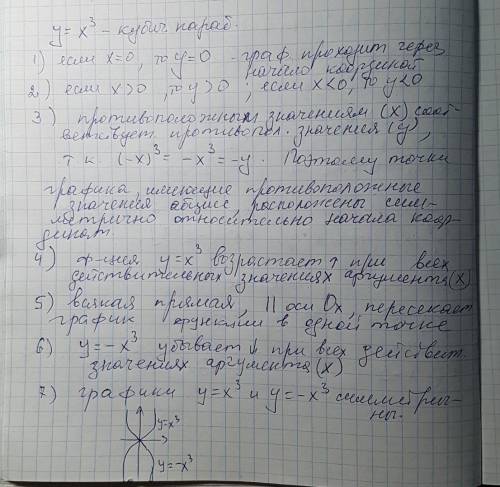 y = x³ – кубич. параб.
1) если x=0, то y=0 - граф. проходит через
начало координат
2) если x>0, то y>0 ; если x<0, то y<0
3) противоположным значениям (x) соот-
ветствует противопол. значения (y),
т к. (-x)³ = -x³ = -y. Поэтому точки
графика, имеющие противоположные
значения абцисс расположены сим-
метрично относительно начала коор-
динат.
4) ф-ция y=x³ возрастает ↑ при всех
действительных значениях аргумента (x)
5) всякая прямая, || оси Ox, пересекает
график функции в одной точке
6) y=-x³ убывает ↓ при всех действит.
значениях аргумента (x)
7) графики y=x³ и y=-x³ симметрич-
ны.
y=x³
y=-x³